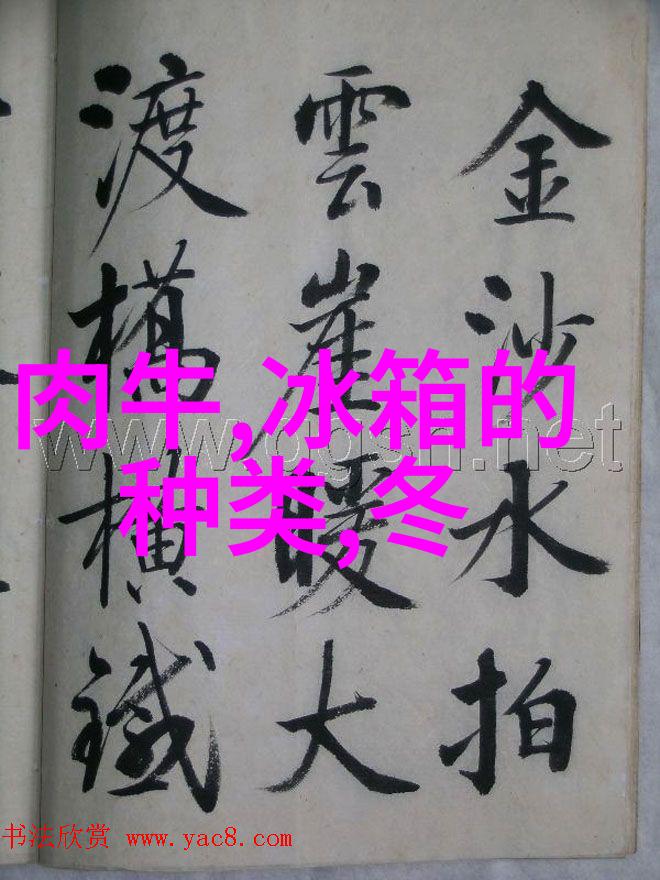 金沙水拍
雲崖暖大
渡橋橫鐵
肉牛,冰箱的
种类,冬
书法欣赏 www.yac8.com